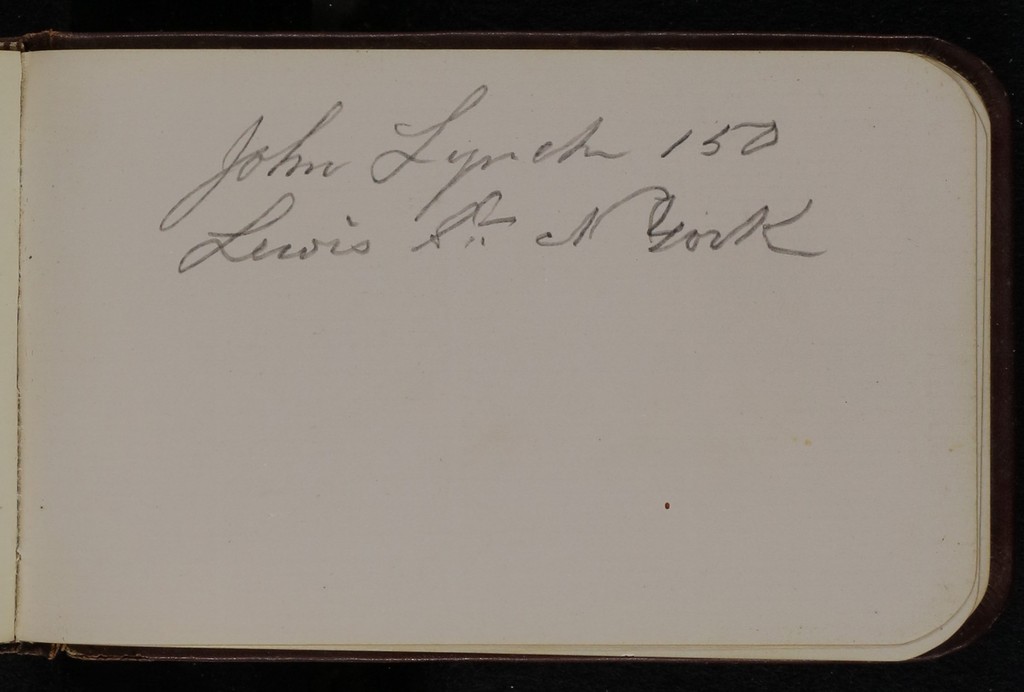 John Lynch 150
Lewis St. N York